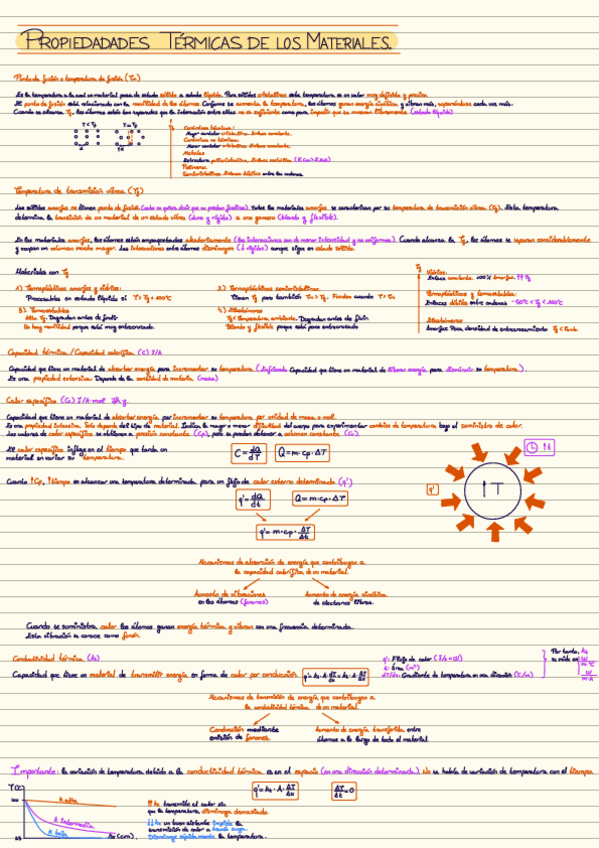 PROPIEDADADES TÉRMICAS DE LOS MATERIALES.
Punto de fusión o temperatura de fusión (Tm)
Es la temperatura a la cual un material pasa de estado sólido a estado líquido. Para sólidos cristalinos esta temperatura es un valor muy definido y preciso.
El punto de fusión está relacionado con la movilidad de los átomos. Conforme se aumenta la temperatura, los átomos ganan energía cinética y vibran más, separándose cada vez más.
Cuando se alcanza Tf, los átomos están tan separados que la interacción entre ellos no es suficiente como para impedir que se muevan libremente (estado líquido)
T < Tf T = Tf
Metales
Temperatura de transmisión vítrea (Tg)
Los sólidos amorfos no tienen punto de fusión (esto no quiere decir que no puedan fundirse). Todos los materiales amorfos se caracterizan por su temperatura de transmisión vítrea (Tg). Esta temperatura
determina la transición de un material de un estado vítreo (duro y rígido) a uno gomoso (blando y flexible).
En los materiales amorfos, los átomos están empaquetados aleatoriamente (las interacciones son de menor intensidad y no uniformes). Cuando alcanza la Tg, los átomos se separan considerablemente
y ocupan un volumen mucho mayor. Las interacciones entre átomos disminuyen (↓ rígidos) aunque sigue en estado sólido.
Materiales con Tg
1) Termoplásticos amorfos y vidrios:
Procesables en estado líquido si T > Tg + 100°C
2) Termoplásticos semicristalinos:
Tienen Tg pero también Tm > Tg. Funden cuando T > Tm
3) Termoestables:
Alta Tg. Degradan antes de fundir.
No hay movilidad porque está muy entrecruzado.
4) Elastómeros
Tg < Temperatura ambiente. Degradan antes de fluir.
Blando y flexible porque está poco entrecruzado
Tg
Vidrios:
Enlace constante. 100% amorfos. ↑↑ Tg
Termoplásticos y termoestables:
Enlaces débiles entre cadenas -50°C < Tg < 200°C
Elastómeros
Amorfos. Poca densidad de entrecruzamiento
Capacidad térmica / Capacidad calorífica (C) J/K
Capacidad que tiene un material de absorber energía para incrementar su temperatura (Capacidad que tiene un material de liberar energía para disminuir su temperatura)
Es una propiedad extensiva. Depende de la cantidad de materia (masa)
Calor específico (Ce)
Capacidad que tiene un material de absorber energía por incrementar su temperatura por unidad de masa o mol.
Es una propiedad intensiva. Solo depende del tipo de material. Indica la mayor o menor dificultad del cuerpo para experimentar cambios de temperatura bajo el suministro de calor.
Los valores de calor específico se obtienen a presión constante (Cp), pero se pueden obtener a volumen constante (Cv).
El calor específico influye en el tiempo que tarda un
material en variar su temperatura.
C = dQ/dT
Q = m · cp · ΔT
Cuanto ↑Cp, ↑tiempo en alcanzar una temperatura determinada para un flujo de calor externo determinado (q')
q' = dQ/dt
Q = m · cp · ΔT
q' = m · cp · ΔT/Δt
q'
↑T
Mecanismos de absorción de energía que contribuyen a
la capacidad calorífica de un material.
Aumento de vibraciones
en los átomos (fonones)
Aumento de energía cinética
de electrones libres.
Cuando se suministra calor los átomos ganan energía térmica y vibran con una frecuencia determinada.
Esta vibración se conoce como fonón.
Conductividad térmica (k)
Capacidad que tiene un material de transmitir energía en forma de calor por conducción.
q': Flujo de calor (J/s = W)
A: área (m²)
Gradiente de temperatura en una dirección
Por tanto, k
se mide en
Mecanismos de transmisión de energía que contribuyen a
la conductividad térmica de un material.
Conducción mediante
emisión de fonones.
Aumento de energía transferida entre
átomos a lo largo de todo el material.
Importante: la variación de temperatura debido a la conductividad térmica es en el espacio (en una dirección determinada). No se habla de variación de temperatura con el tiempo.
K alta
K intermedia
K baja
transmite el calor sin
que la temperatura disminuya demasiado.
un buen aislante impide la
transmisión de calor a
Disminuye rápidamente la temperatura.
ΔT/Δt = 0